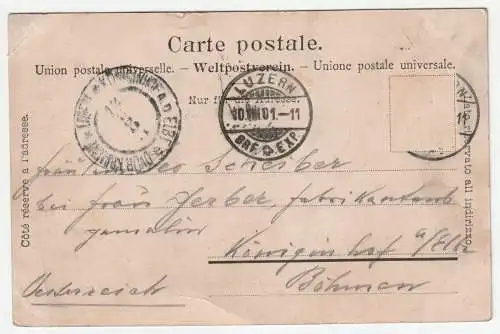 Carte postale.
Union postale universelle. – Weltpostverein. – Unione postale universale.
Nur für die Adresse.
Côté réservé à l'adresse.
Lato riservato all' indirizzo.
LUZERN
10.VIII.01.–11
BRF. EXP.
KÖNIGINHOF A.D. ELBE
11
Scheiber
bei Frau Gerber, Fabrikanten
gemalin
Königinhof a/Elbe
Böhmen
Oesterreich